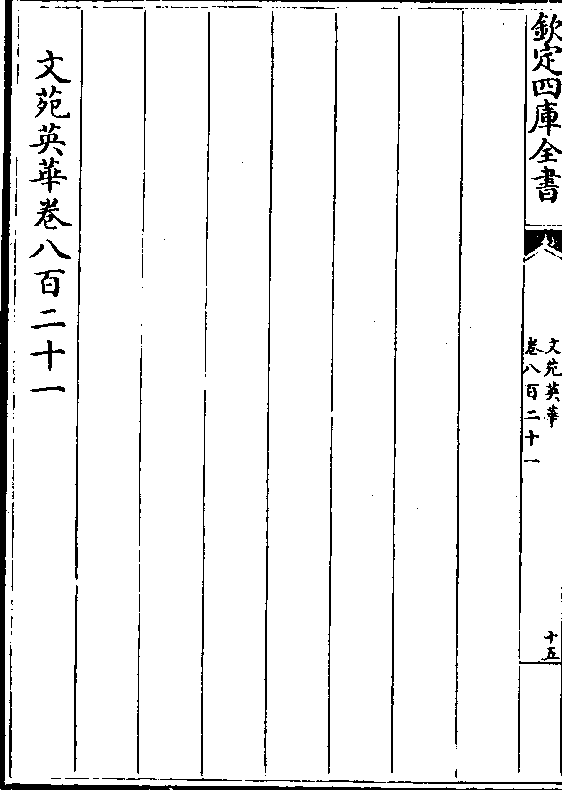 欽定四庫全書
文苑英華
卷八百二十一
十五
文苑英華卷八百二十一